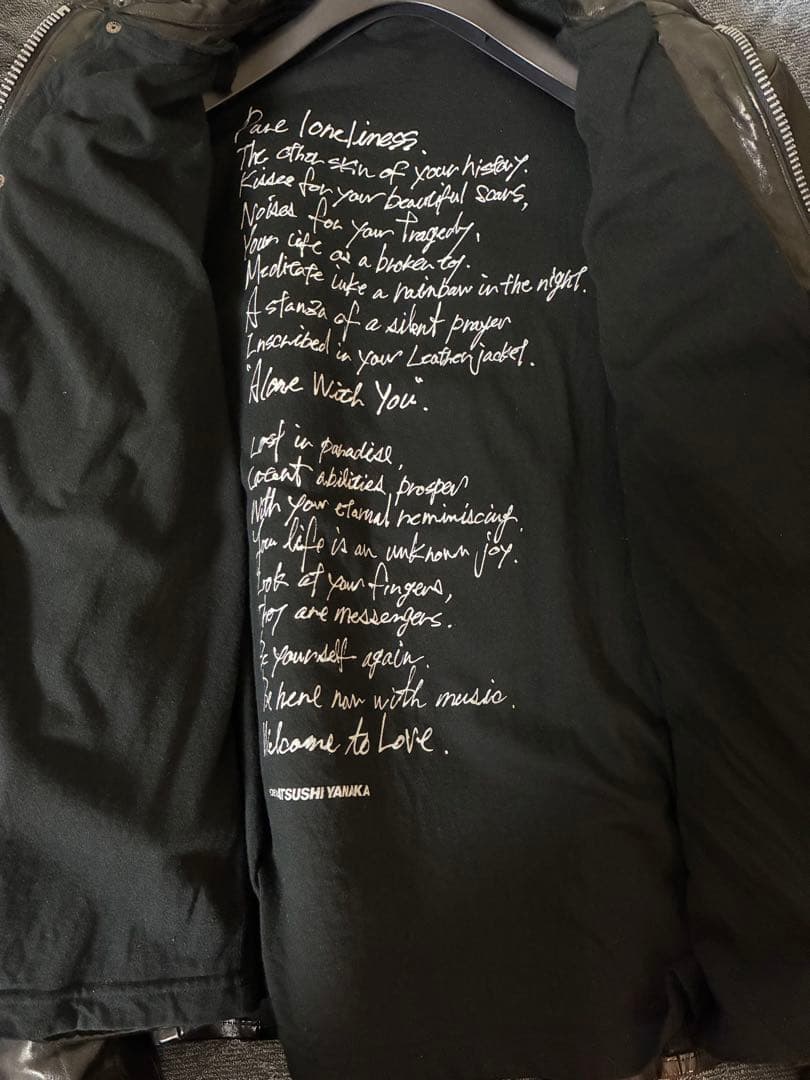 Pure loneliness.
The other skin of your history.
Kisses for your beautiful scars,
Noises for your tragedy,
Your life as a broken toy.
Meditate like a rainbow in the night.
A stanza of a silent prayer
Inscribed in your Leather jacket.
"Alone With You".
Lost in paradise,
Latent abilities prosper
With your eternal reminiscing.
Your life is an unknown joy.
Look at your fingers,
They are messengers.
Be yourself again.
Be here now with music.
Welcome to Love.
ATSUSHI YANAKA